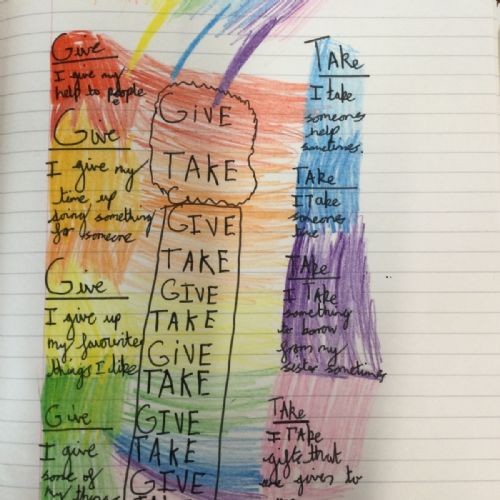 Give
I give my
help to people
Give
I give my
time up
doing something
for someone
Give
I give up
my favourite
things I like
Give
I give
some of
my things
GIVE
TAKE
GIVE
TAKE
GIVE
TAKE
GIVE
TAKE
GIVE
TAKE
GIVE
TAKE
I take
someones
help
sometimes.
TAKE
I TAke
someones
TAke
I TAKe
something
to borrow
from my
sister sometimes
TAKe
I TAKe
gifts that
gives to